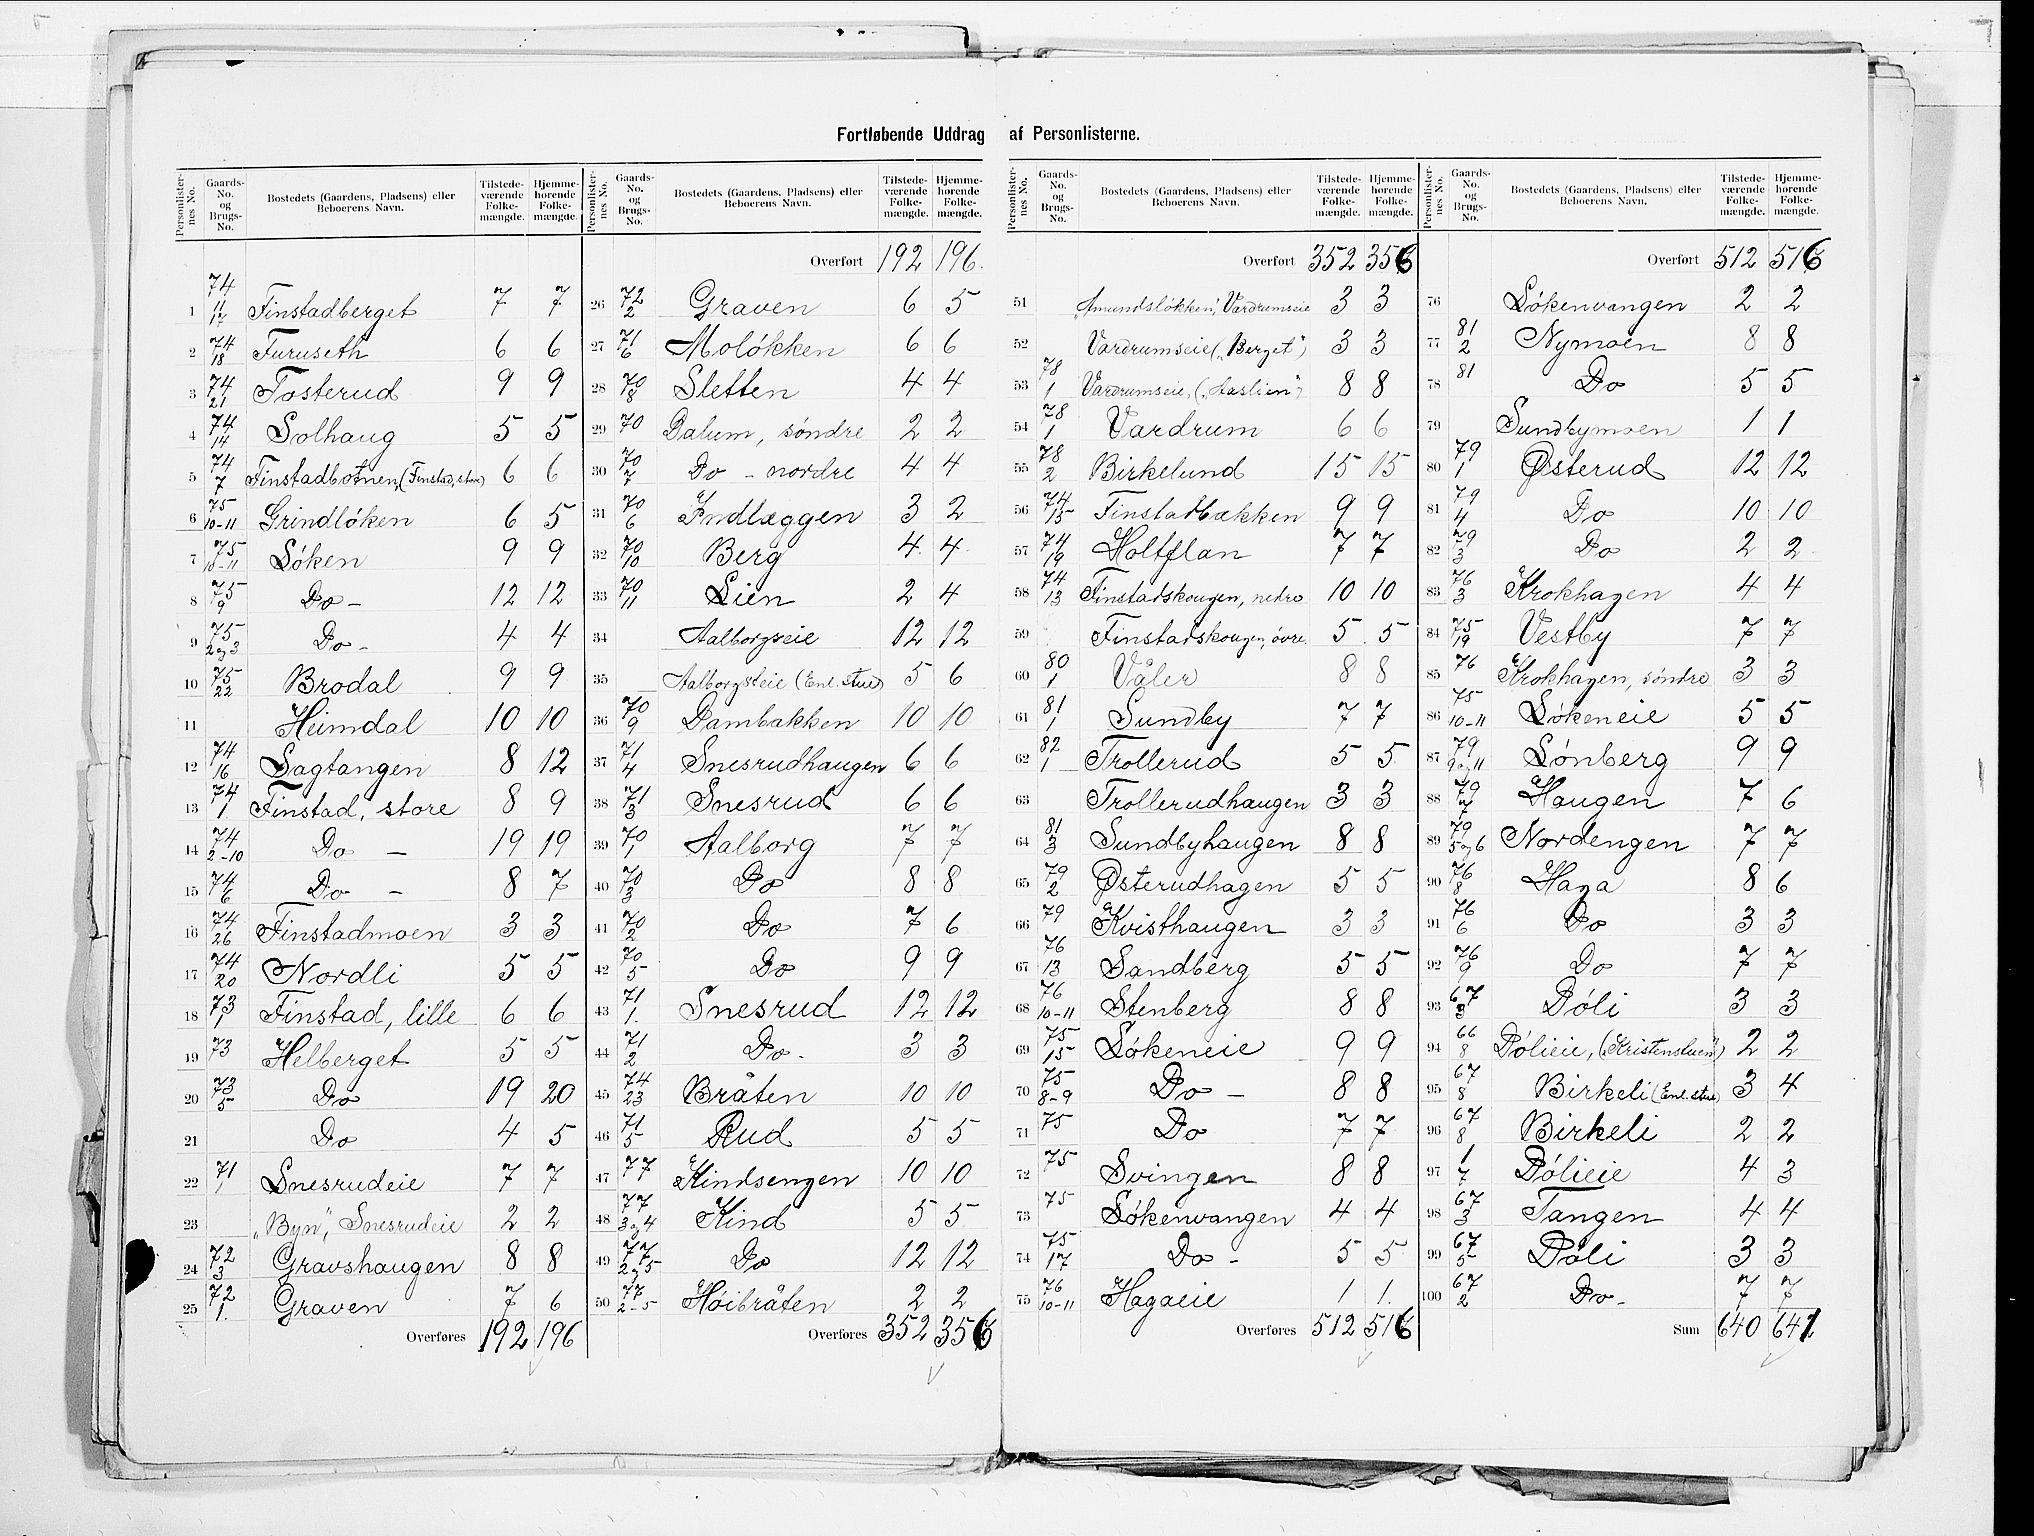 Fortløbende Uddrag af Personlisterne.
Personlister-nes No. | Gaards-No. og Brugs-No. | Bostedets (Gaardens, Pladsens) eller Beboerens Navn. | Tilstede-værende Folke-mængde. | Hjemme-hørende Folke-mængde.
1 74 11 17 Finstadberget 7 7
2 74 18 Furuseth 6 6
3 74 21 Tosterud 9 9
4 74 14 Solhaug 5 5
5 74 7 Finstadbotnen (Finstad, store) 6 6
6 75 10-11 Grindløken 6 5
7 75 10-11 Løken 9 9
8 75 9 Do - 12 12
9 75 2 og 3 Do - 4 4
10 75 22 Brodal 9 9
11 Heimdal 10 10
12 74 16 Sagtangen 8 12
13 74 1 Finstad, store 8 9
14 74 2-10 Do - 19 19
15 74 6 Do - 8 7
16 74 26 Finstadmoen 3 3
17 74 20 Nordli 5 5
18 73 1 Finstad, lille 6 6
19 73 Helberget 5 5
20 73 5 Do 19 20
21 Do 4 5
22 71 1 Snesrudeie 7 7
23 „Byn", Snesrudeie 2 2
24 72 3 Gravshaugen 8 8
25 72 1. Graven 7 6
Overføres 192 196
Personlister-nes No. | Gaards-No. og Brugs-No. | Bostedets (Gaardens, Pladsens) eller Beboerens Navn. | Tilstede-værende Folke-mængde. | Hjemme-hørende Folke-mængde.
Overført 192 196.
26 72 2 Graven 6 5
27 71 6 Moløkken 6 6
28 70 8 Sletten 4 4
29 70 Dalum, søndre 2 2
30 70 7 Do - nordre 4 4
31 70 6 Indlæggen 3 2
32 70 10 Berg 4 4
33 70 11 Lien 2 4
34 Aalborgseie 12 12
35 Aalborgseie (Enl. stue) 5 6
36 70 9 Dambakken 10 10
37 71 4 Snesrudhaugen 6 6
38 71 3 Snesrud 6 6
39 70 1 Aalborg 7 7
40 70 3 Do 8 8
41 70 2 Do 7 6
42 70 5 Do 9 9
43 71 1. Snesrud 12 12
44 71 2 Do - 3 3
45 74 23 Bråten 10 10
46 71 5 Rud 5 5
47 77 Kindsengen 10 10
48 77 3 og 4 Kind 5 5
49 77 2 og 5 Do 12 12
50 77 2-5 Høibråten 2 2
Overføres 352 356
Personlister-nes No. | Gaards-No. og Brugs-No. | Bostedets (Gaardens, Pladsens) eller Beboerens Navn. | Tilstede-værende Folke-mængde. | Hjemme-hørende Folke-mængde.
Overført 352 356
51 „Amundsløkken", Vardrumseie 3 3
52 Vardrumseie („Berget") 3 3
53 78 1 Vardrumseie, („Aaslien") 8 8
54 78 1 Vardrum 6 6
55 78 2 Birkelund 15 15
56 74 15 Finstadbækken 9 9
57 74 19 Holtflan 7 7
58 74 13 Finstadskougen, nedre 10 10
59 Finstadskougen, øvre. 5 5
60 80 1 Våler 8 8
61 81 1 Sundby 7 7
62 82 1 Trollerud 5 5
63 Trollerudhaugen 3 3
64 81 3 Sundbyhaugen 8 8
65 79 2 Østerudhagen 5 5
66 79 Kvisthaugen 3 3
67 76 13 Sandberg 5 5
68 76 10-11 Stenberg 8 8
69 75 15 Løkeneie 9 9
70 75 8-9 Do - 8 8
71 75 Do 7 7
72 75 Svingen 8 8
73 75 Løkenvangen 4 4
74 75 17 Do - 5 5
75 76 10-11 Hagaeie 1 1.
Overføres 512 516
Personlister-nes No. | Gaards-No. og Brugs-No. | Bostedets (Gaardens, Pladsens) eller Beboerens Navn. | Tilstede-værende Folke-mængde. | Hjemme-hørende Folke-mængde.
Overført 512 516
76 Løkenvangen 2 2
77 81 2 Nymoen 8 8
78 81 Do 5 5
79 Sundbymoen 1 1
80 79 1 Østerud 12 12
81 79 4 Do 10 10
82 79 3 Do 2 2
83 76 3 Krokhagen 4 4
84 75 19 Vestby 7 7
85 76 Krokhagen, søndre 3 3
86 75 10-11 Løkeneie 5 5
87 79 9 og 11 Lønberg 9 9
88 79 7 Haugen 7 6
89 79 5 og 6 Nordengen 7 7
90 76 8 Haga 8 6
91 76 6 Do 3 3
92 76 9 Do 7 7
93 67 3 Døli 3 3
94 66 8 Dølieie, („Kristenstuen") 2 2
95 67 8 Birkeli (Enl. stue) 3 4
96 67 8 Birkeli 2 2
97 1 7 Dølieie 4 3
98 67 3 Tangen 4 4
99 67 5 Døli 3 3
100 67 2 Do - 7 7
Sum 640 641